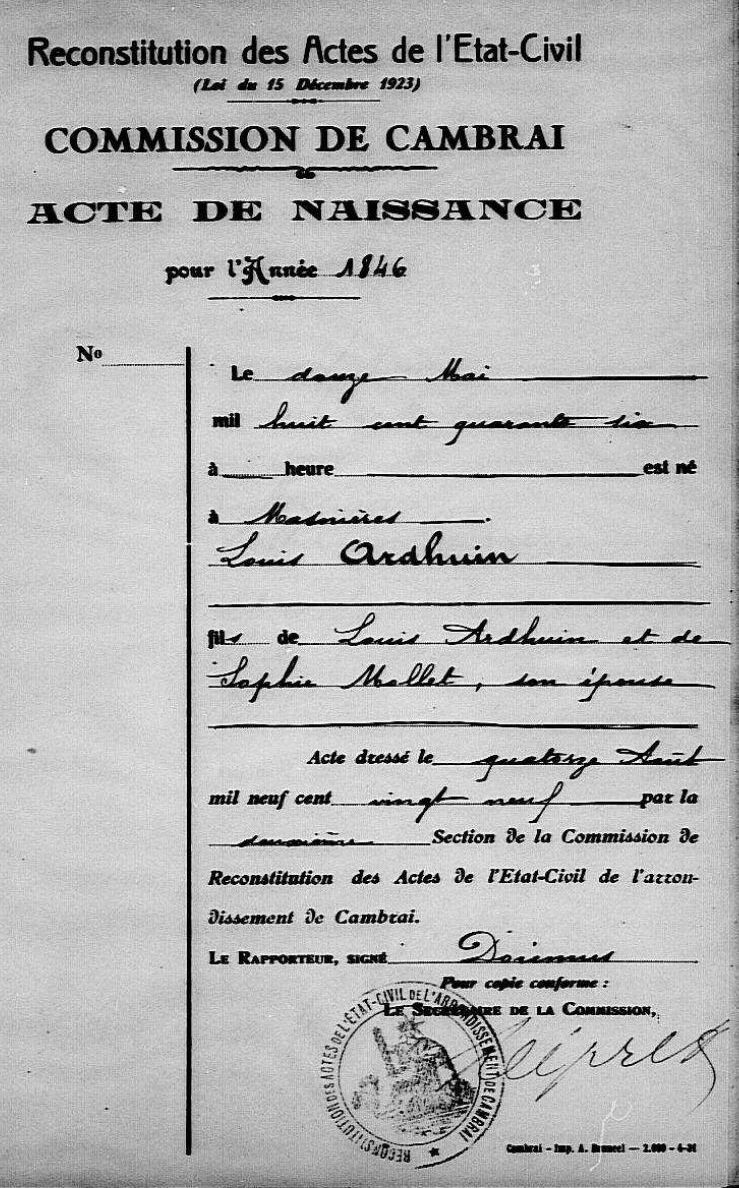 Reconstitution des Actes de l'Etat-Civil
(Loi du 15 Décembre 1923)
COMMISSION DE CAMBRAI
ACTE DE NAISSANCE
pour l'Année 1846
No
Le douze Mai
mil huit cent quarante six
à heure est né
à Masnières
Louis Ardhuin
fils de Louis Ardhuin et de
Sophie Mallet, son épouse
Acte dressé le quatorze Août
mil neuf cent vingt neuf par la
douzième Section de la Commission de
Reconstitution des Actes de l'Etat-Civil de l'arron-
dissement de Cambrai.
LE RAPPORTEUR, SIGNÉ
Pour copie conforme :
LE SECRÉTAIRE DE LA COMMISSION,
RECONSTITUTION DES ACTES DE L'ÉTAT-CIVIL DE L'ARRONDISSEMENT DE CAMBRAI
Cambrai - Imp. A. - 2.000 -